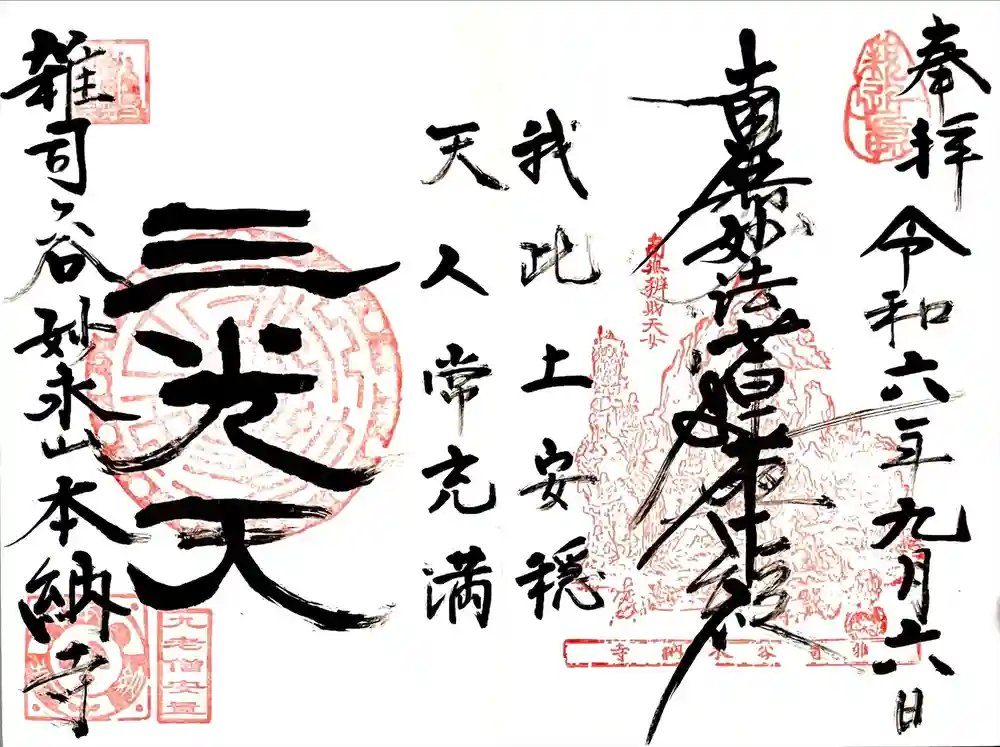 奉拝
令和六年九月六日
南無妙法蓮華経
我此土安穏
天人常充満
三光天
雑司ヶ谷妙永山本納寺
南無辨財天女
雑司ヶ谷本納寺
九老僧安立